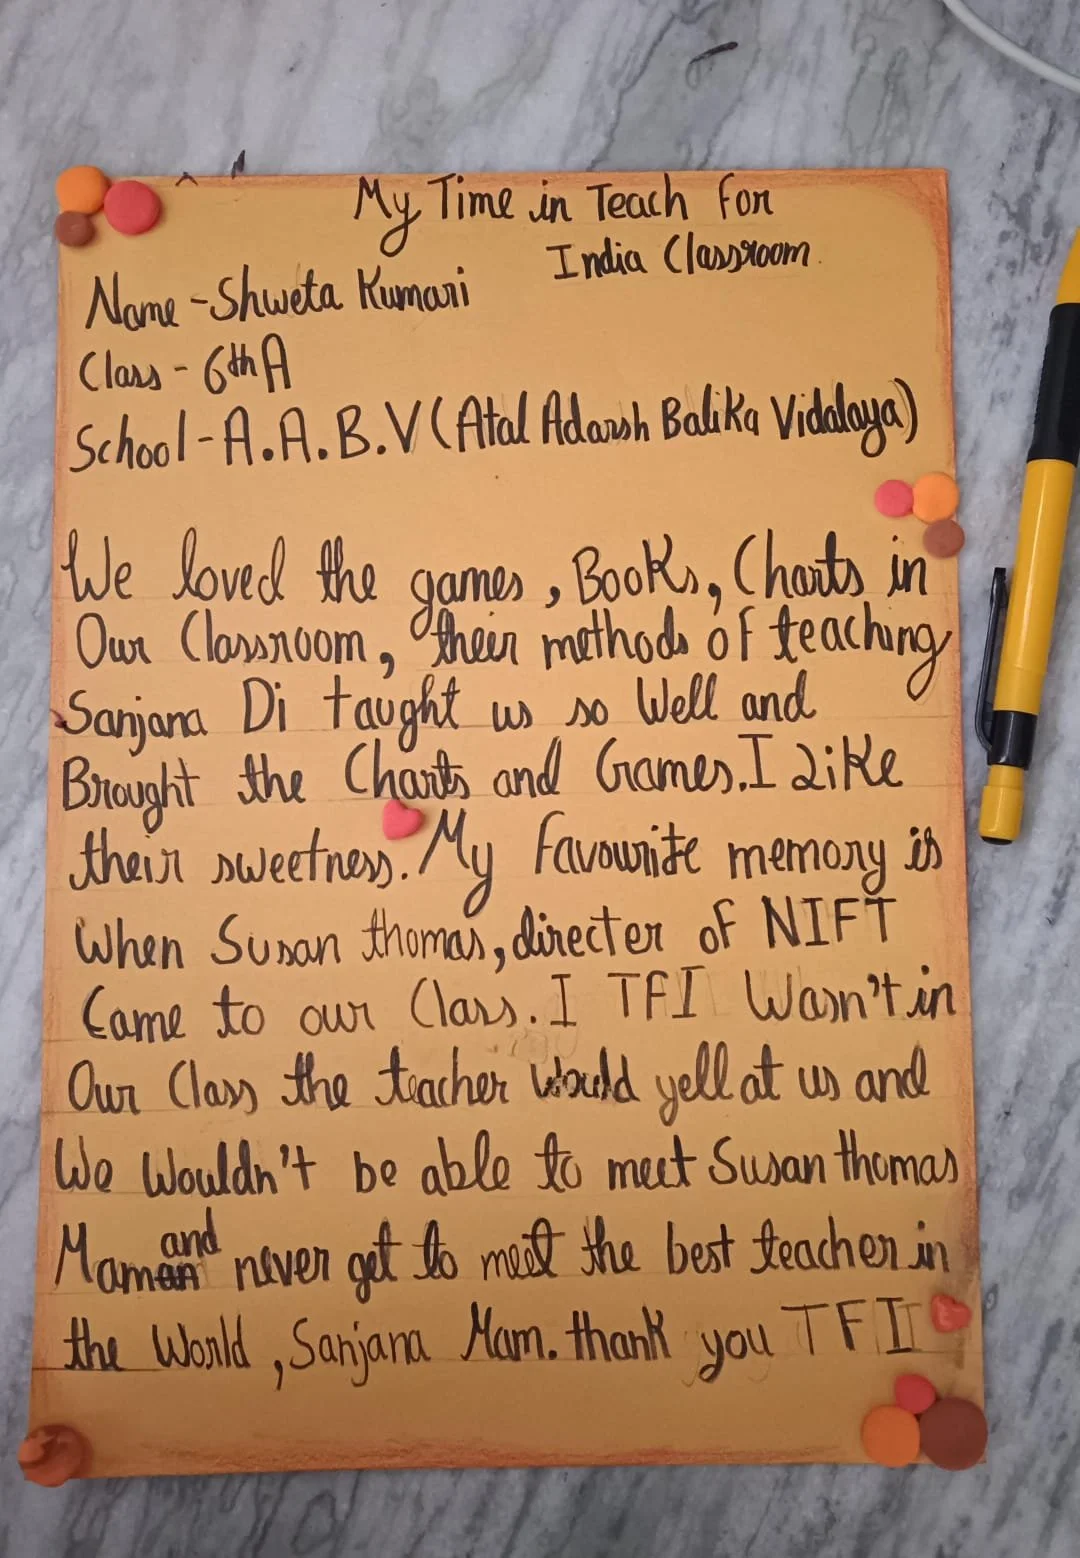 My Time in Teach For
India Classroom.
Name - Shweta Kumari
Class - 6th A
School - A.A.B.V (Atal Adarsh Balika Vidalaya)
We loved the games, Books, Charts in
Our Classroom, their methods of teaching
Sanjana Di taught us so Well and
Brought the Charts and Games. I Like
their sweetness. My Favourite memory is
When Susan thomas, directer of NIFT
Came to our Class. I TFI Wasn't in
Our Class the teacher Would yell at us and
We Wouldn't be able to meet Susan thomas
Mam and never get to meet the best teacher in
the World, Sanjana Mam. thank you TFI